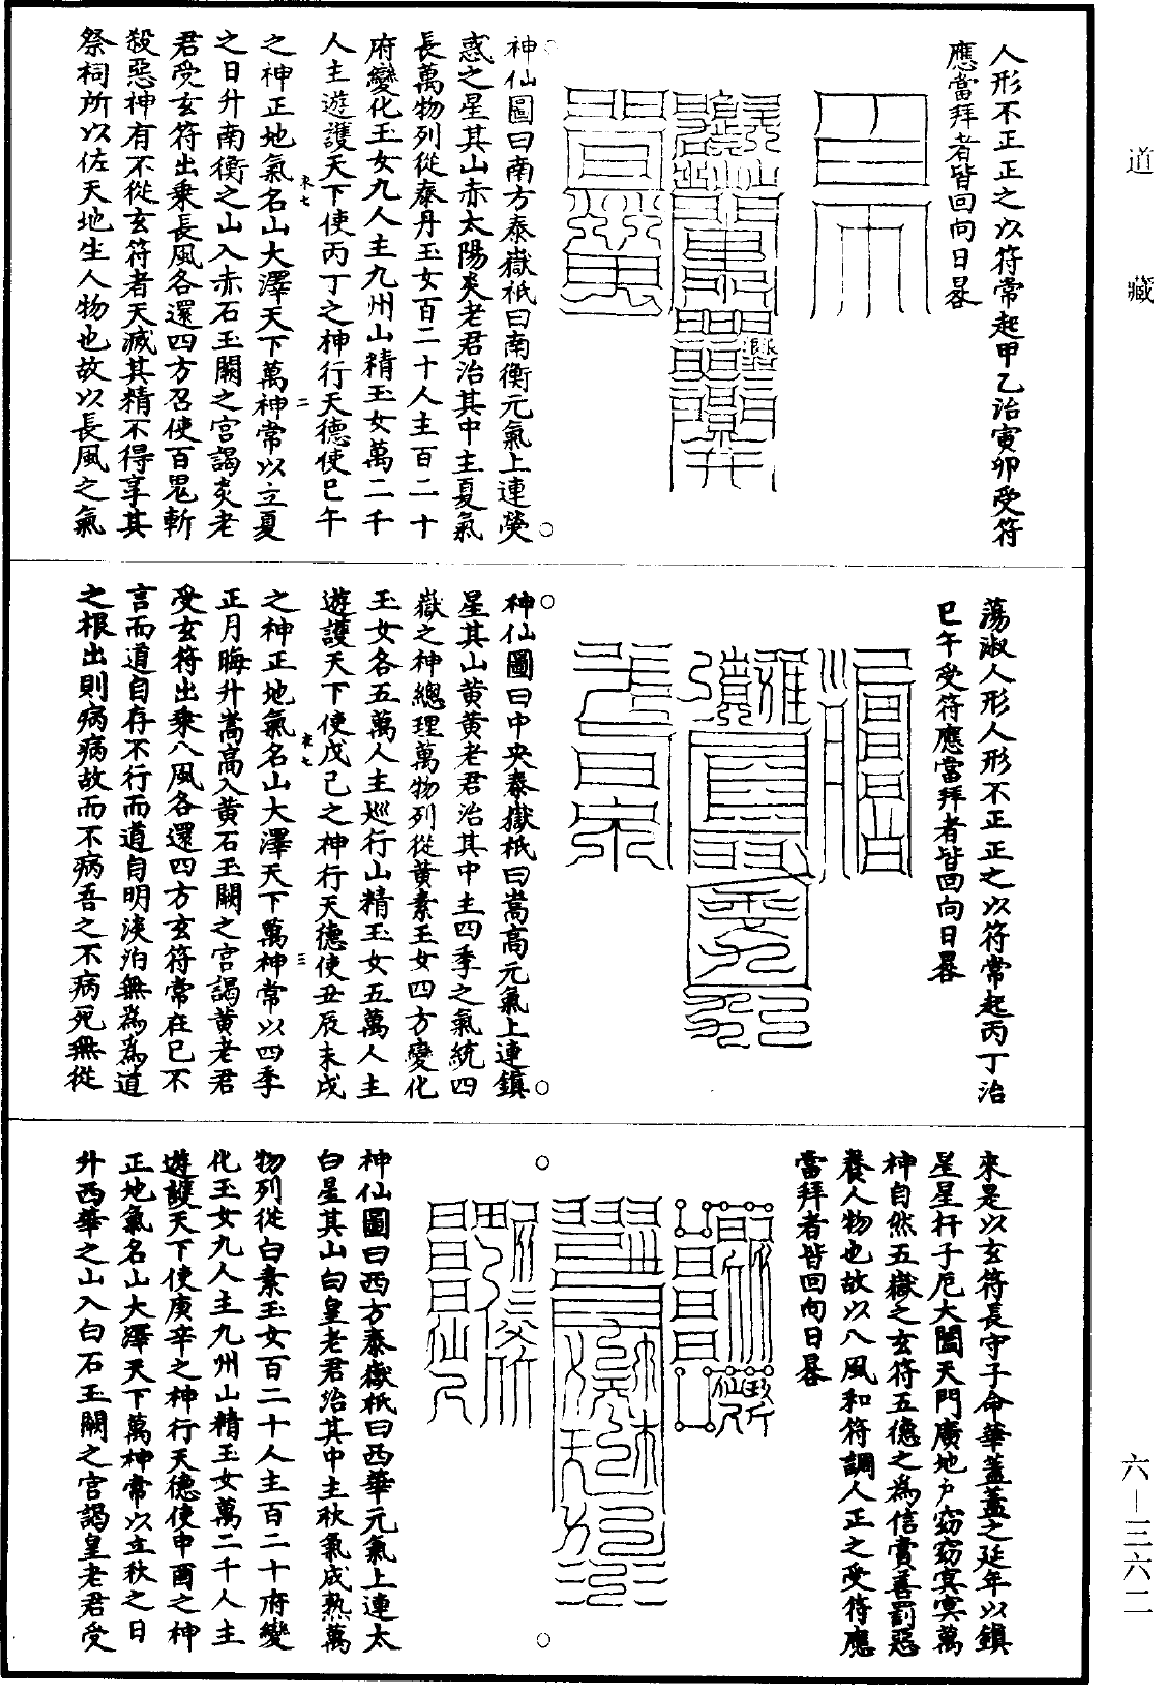 道藏
人形不正正之以符常起甲乙治寅卯受符
應當拜者皆回向日晷
神仙圖曰南方泰嶽祇曰南衡元氣上連熒
惑之星其山赤太陽炎老君治其中主夏氣
長萬物列從泰丹玉女百二十人主百二十
府變化玉女九人主九州山精玉女萬二千
人主遊護天下使丙丁之神行天德使巳午
之神正地氣名山大澤天下萬神常以立夏
之日升南衡之山入赤石玉闕之宮謁炎老
君受玄符出乘長風各還四方召使百鬼斬
殺惡神有不從玄符者天滅其精不得享其
祭祠所以佐天地生人物也故以長風之氣
蕩淑人形人形不正正之以符常起丙丁治
巳午受符應當拜者皆回向日晷
神仙圖曰中央泰嶽祇曰嵩高元氣上連鎮
星其山黃黃老君治其中主四季之氣統四
嶽之神總理萬物列從黃素玉女四方變化
玉女各五萬人主巡行山精玉女五萬人主
遊護天下使戊己之神行天德使丑辰未戌
之神正地氣名山大澤天下萬神常以四季
正月晦升嵩高入黃石玉闕之宮謁黃老君
受玄符出乘八風各還四方玄符常在已不
言而道自存不行而道自明淡泊無為為道
之根出則病病故而不病吾之不病死無從
來是以玄符長守子命華蓋蓋之延年以鎮
星星扞子厄大闔天門廣地戶窈窈冥冥萬
神自然五嶽之玄符五德之為信賞善罰惡
養人物也故以八風和符調人正之受符應
當拜者皆回向日晷
神仙圖曰西方泰嶽祇曰西華元氣上連太
白星其山白皇老君治其中主秋氣成熟萬
物列從白素玉女百二十人主百二十府變
化玉女九人主九州山精玉女萬二千人主
遊護天下使庚辛之神行天德使申酉之神
正地氣名山大澤天下萬神常以立秋之日
升西華之山入白石玉闕之宮謁皇老君受
六–三六二